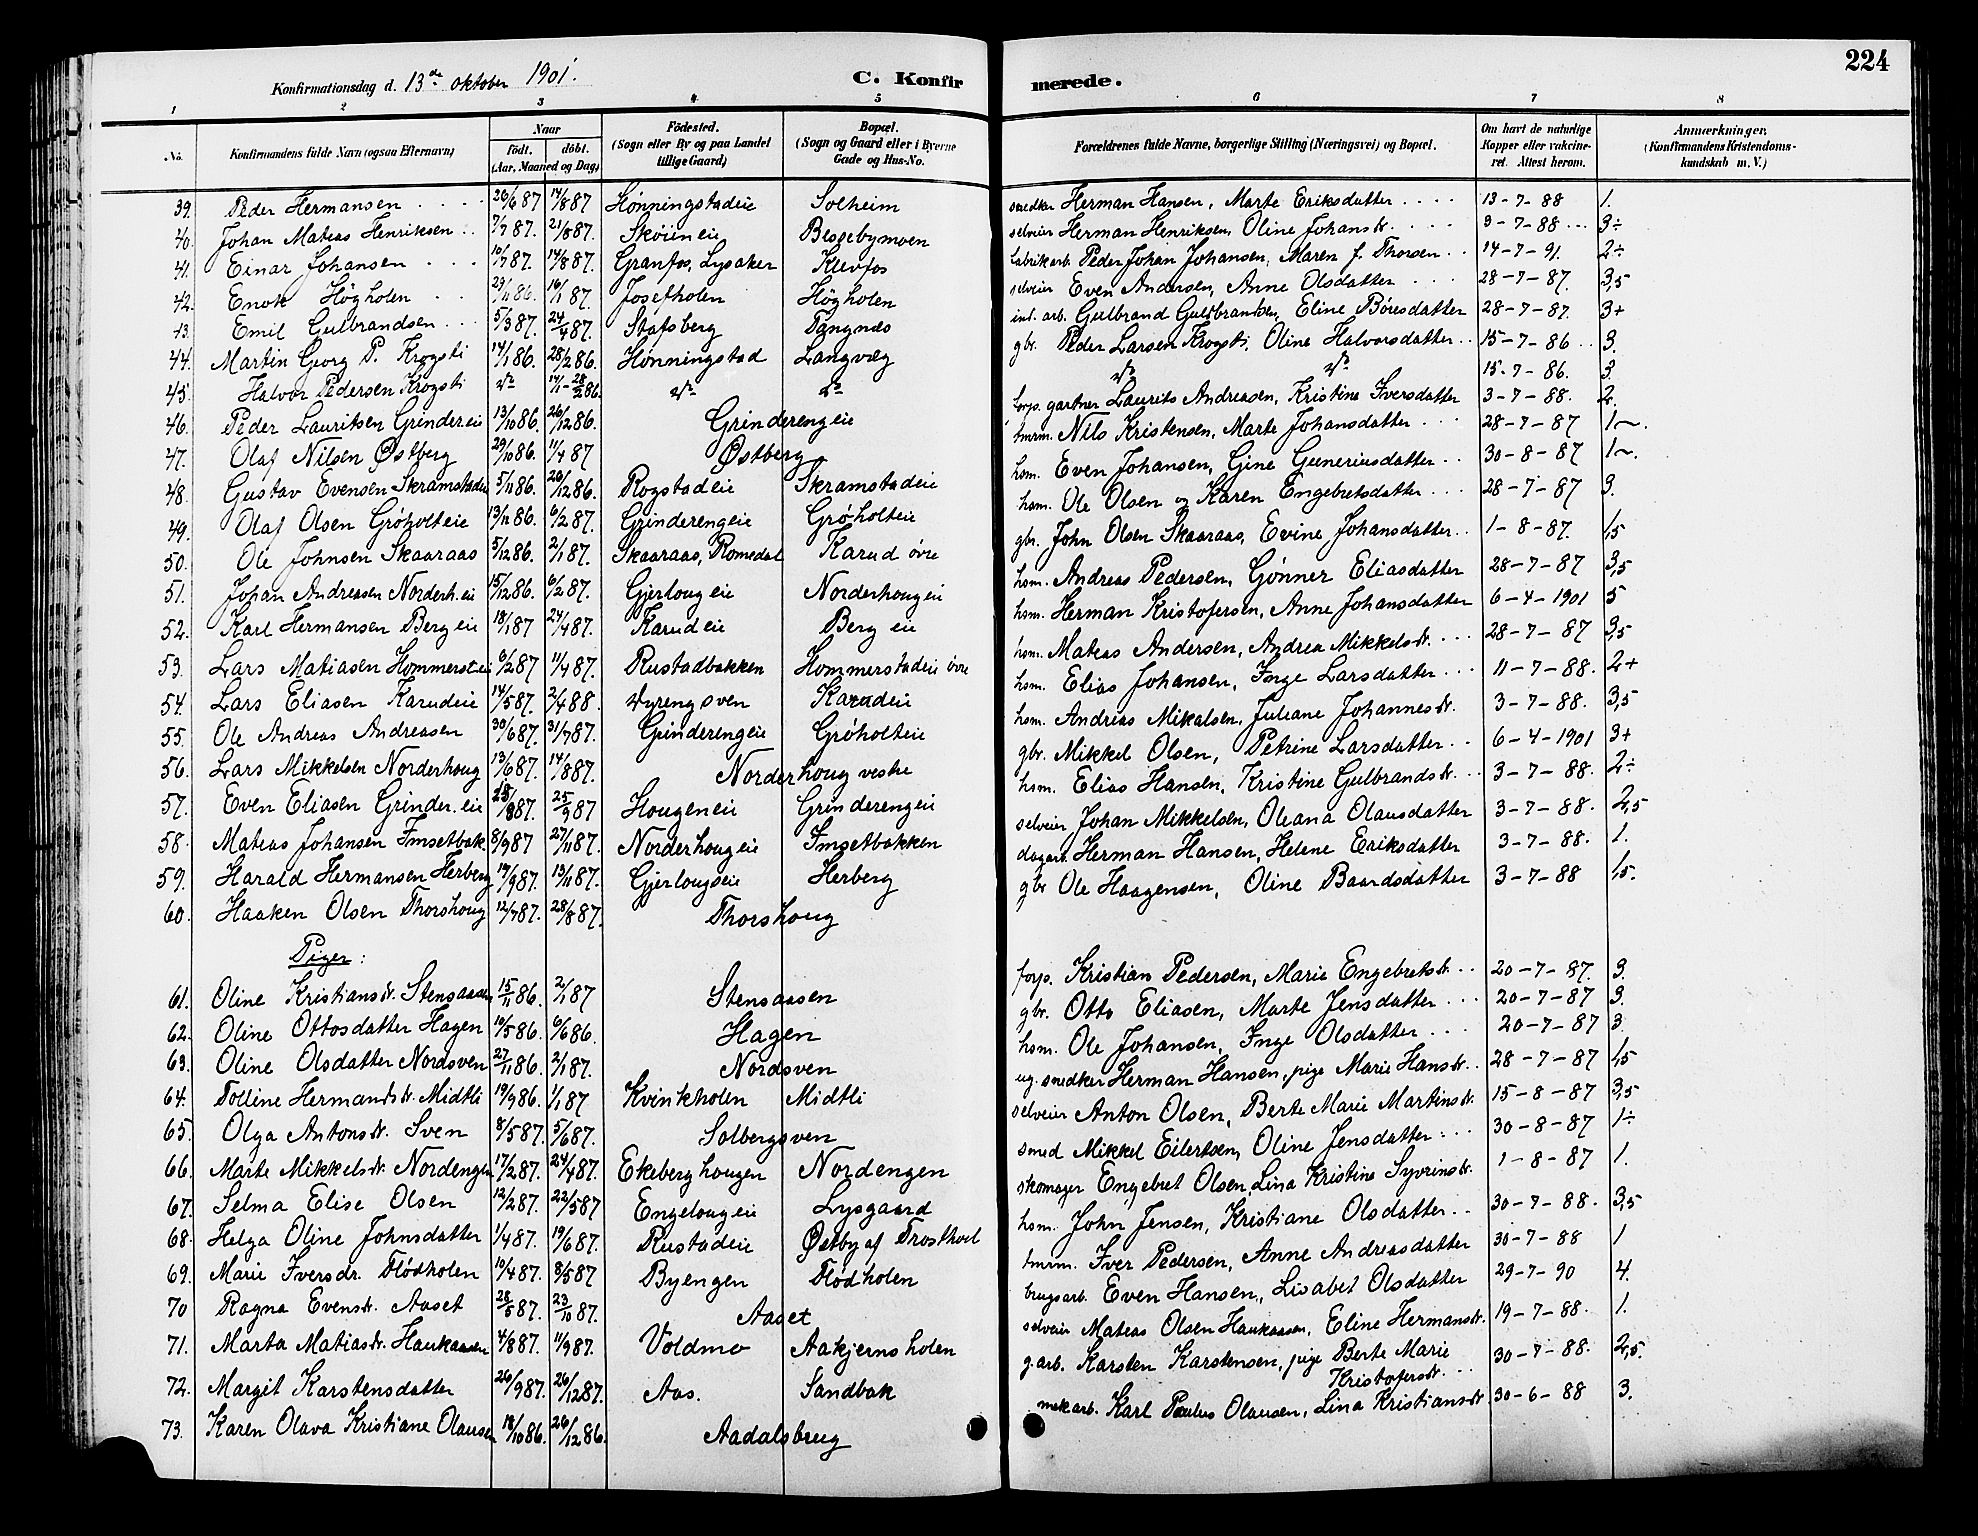 224
Konfirmationsdag d. 13de oktober 1901. C. Konfir merede.
1 2 3 4 5 6 7 8
No. Konfirmandens fulde Navn (ogsaa Efternavn) Naar Födt. döbt. (Aar, Maaned og Dag) Födested. (Sogn eller By og paa Landet tillige Gaard) Bopæl. (Sogn og Gaard eller i Byerne Gade og Hus-No. Forældrenes fulde Navne, borgerlige Stilling (Næringsvei) og Bopæl. Om havt de naturlige Kopper eller vakcineret. Attest herom. Anmærkninger. (Konfirmandens Kristendomskundskab m. V.)
39. Peder Hermansen 26/6 87 14/8 87 Hønningstadeie Solheim snedker Herman Hansen, Marte Eriksdatter 13-7-88 1.
40. Johan Matias Henriksen 7/7 87. 21/8 87. Skøieneie Bessebymoen selveier Herman Henriksen, Oline Johansdr. 3-7-88 3÷
41. Einar Johansen 10/7 87. 14/8 87. Granfos, Lysaker Klevfos fabrikarb. Peder Johan Johansen, Maren f. Thorsen 14-7-91 2÷
42. Enok Høgholen 29/11 86. 16/1 87 Josefholen Høgholen selveier Even Andersen, Anne Olsdatter 28-7-87. 3,5
43. Emil Gulbrandsen 5/3 87. 24/4 87. Stafsberg Tangnæs int. arb. Gulbrand Gulbrandsen, Eline Böresdatter 28-7-87. 3+
44. Martin Georg P. Krogsti 14/1 86. 28/2 86. Hønningstad Langvæg gbr. Peder Larsen Krogsti, Oline Halvorsdatter 15-7-86 3.
45. Halvor Pedersen Krogsti do 14/1-28/2 86. do do do do 15-7-86. 3.
46. Peder Lauritsen Grinder.eie 13/10 86. 26/12 86. Grinderengeie forp. gartner Laurits Andreasen, Kristine Iversdatter 3-7-88. 2.
47. Olaf Nilsen Østberg 29/10 86. 11/4 87 Østberg tmrm. Nils Kristensen, Marte Johansdatter 28-7-87 1~.
48. Gustav Evensen Skramstadeie 5/11 86. 26/12 86. Rogstadeie Skramstadeie hsm. Even Johansen, Gine Guneriusdatter 30-8-87 1~.
49. Olaf Olsen Grøholteie 13/11 86. 6/2 87. Grinderengeie Grøholteie hsm. Ole Olsen og Karen Engebretsdatter 28-7-87 3.
50. Ole Johnsen Skaaraas 5/12 86. 2/1 87. Skaaraas, Romedal Karud øvre gbr. John Olsen Skaaraas, Evine Johansdatter 1-8-87. 1,5
51. Johan Andreasen Norderh.eie 15/12 86. 6/2 87. Gjerlougeie Norderhougeie hsm. Andreas Pedersen, Gønner Eliasdatter 28-7-87 3,5
52. Karl Hermansen Bergeie 18/1 87 24/4 87. Karudeie Bergeie hsm. Herman Kristofersen, Anne Johansdatter 6-4-1901 5
53. Lars Matiasen Hommerst.eie 6/2 87 11/4 87. Rustadbakken Hommerstadeie øvre hsm. Mateas Andersen, Andrea Mikkelsdr. 28-7-87 3,5
54. Lars Eliasen Karudeie 14/5 87. 2/4 88. Vyrengsven Karudeie hsm. Elias Johansen, Inge Larsdatter 11-7-88. 2+
55. Ole Andreas Andreasen 30/6 87. 31/7 87. Grinderengeie Grøholteie hsm. Andreas Mikalsen, Juliane Johannesdr. 3-7-88. 3,5
56. Lars Mikkelsen Norderhoug 13/6 87. 14/8 87. Norderhoug vestre gbr. Mikkel Olsen, Petrine Larsdatter 6-4-1901 3+
57. Even Eliasen Grinder.eie 87. 25/9 87 Hougeneie Grinderengeie hsm. Elias Hansen, Kristine Gulbrandsdr. 3-7-88. 2÷
58. Mateas Johansen Imsetbak. 8/9 87 27/11 87. Norderhougeie Imsetbakken selveier Johan Mikkelsen, Oleana Olausdatter 3-7-88. 2,5
59. Harald Hermansen Herberg 19/9 87. 13/11 87. Gjerlougseie Herberg dagarb. Herman Hansen, Helene Eriksdatter 3-7-88. 1.
60. Haaken Olsen Thorshoug 12/7 87. 28/8 87. Thorshoug gbr Ole Haagensen, Oline Baardsdatter 3-7-88 1,5.
Piger:
61. Oline Kristiansdr. Stensaasen 15/11 86. 2/1 87 Stensaasen forp. Kristian Pedersen, Marie Engebretsdr. 20-7-87. 3.
62. Oline Ottosdatter Hagen 10/5 86. 6/6 86. Hagen gbr. Otto Eliasen, Marte Jensdatter 20-7-87 3.
63. Oline Olsdatter Nordsven 27/11 86. 2/1 87. Nordsven hsm. Ole Johansen, Inge Olsdatter 20-7-87 3.
64. Tolline Hermansdr. Midtli 19/9 86. 1/1 87 Kvinkholen Midtli ug. snedker Herman Hansen, pige Marie Hansdr. 28-7-87 1,5
65. Olga Antonsdr. Sven 8/5 87. 5/6 87. Solbergsven selveier Anton Olsen, Berte Marie Martinsdr. 15-8-87 3,5
66. Marte Mikkelsdr. Nordengen 17/2 87. 24/4 87. Ekeberghougen Nordengen smed Mikkel Eilertsen, Oline Jensdatter 30-8-87 1÷
67. Selma Elise Olsen 12/2 87. 22/5 87 Engelougeie Lysgaard skomager Engebret Olsen, Lina Kristine Syverinsdr. 1-8-87 1.
68. Helga Oline Johnsdatter 1/4 87. 19/6 87. Rustadeie Østby af Frosthvel hsm. John Jensen, Kristiane Olsdatter 30-7-88. 3,5
69. Marie Iversdr. Flödholen 10/4 87. 8/5 87 Byengen Flödholen tmrm. Iver Pedersen, Anne Andreasdatter 30-7-88 1
70 Ragna Evensdr. Aaset 28/5 87. 23/10 87. Aaset brugsarb. Even Hansen, Lisabet Olsdatter 29-7-90 4.
71. Marta Matiasdr. Haukaasen 4/8 87. 11/9 87. Voldmo Aakjernsholen selveier Mateas Olsen Haukaasen, Eline Hermansdr. 19-7-88. 1.
72. Margit Karstensdatter 26/9 87. 26/12 87. Aas. Sandbak g.arb. Karsten Karstensen, pige Berte Marie Kristofersdr. 30-7-88. 2,5.
73. Karen Olava Kristiane Olausen 18/10 86. 26/12 86. Aadalsbrug mek.arb. Karl Paulus Olausen, Lina Kristiansdr 30-6-88 3.